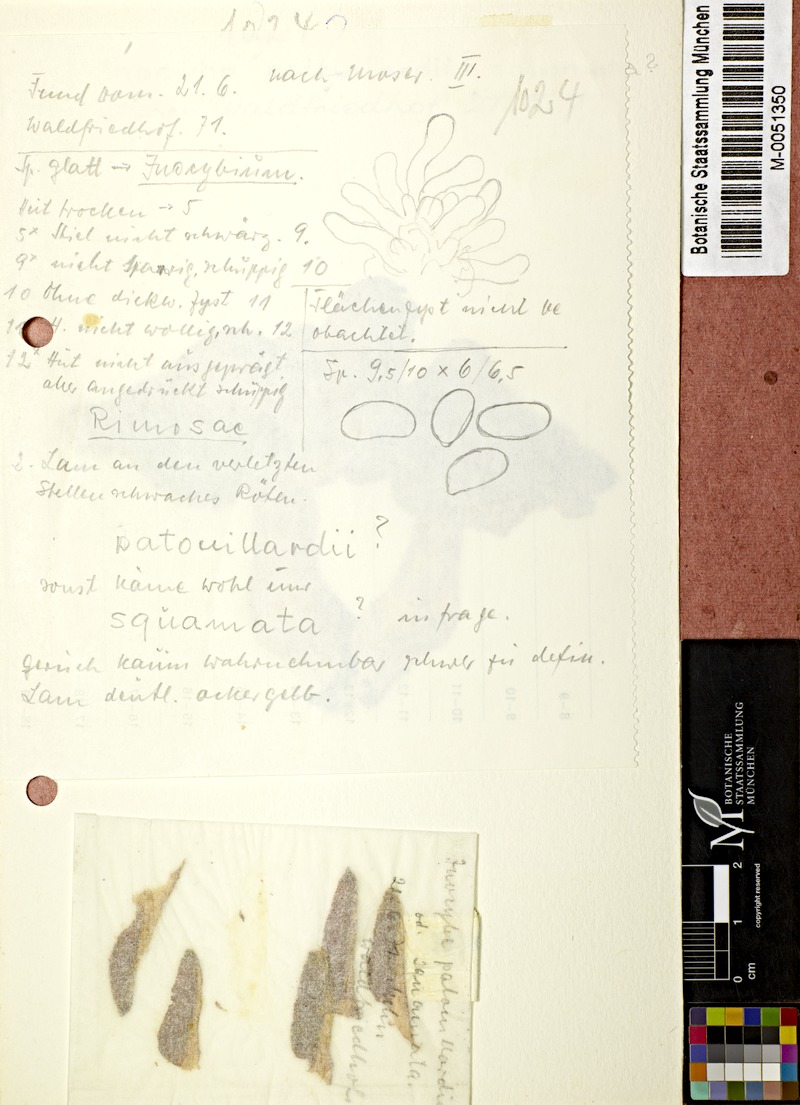 1024
Fund vom. 21. 6. nach Moser. III.
1024
Waldfriedhof. 71.
Sp. glatt → Inocybium.
Hut trocken → 5
5x Stiel nicht schwärz. 9.
9x nicht sparrig, schüppig 10
10 Ohne dickw. Zyst 11
11 H. nicht wollig, sch. 12
12x Hut nicht ausgeprägt
aber angedrückt schüppig
Rimosae
Flächenzyst nicht be
obachtet.
Sp. 9,5/10 x 6/6,5
2. Lam an den verletzten
Stellen schwaches Röten.
patouillardii?
sonst käme wohl nur
squamata ? in frage.
geruch kaum wahrnehmbar schwer zu defin.
Lam deutl. ockergelb.
Inocybe patouillardii
od. squamata.
Waldfriedhof
Botanische Staatssammlung München
M-0051350
BOTANISCHE
STAATSSAMMLUNG
MÜNCHEN
0 1 2
cm
copyright reserved